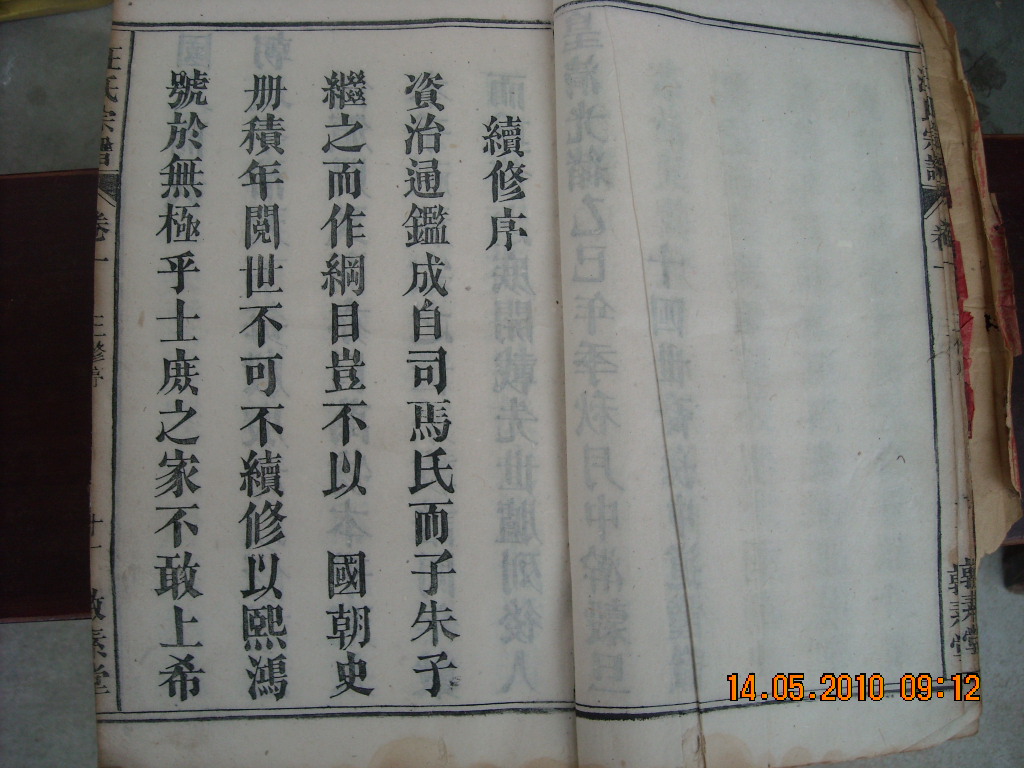 續修序
資治通鑑成自司馬氏而子朱子
繼之而作綱目豈不以 國朝史
册積年閱世不可不續修以熙鴻
號於無極乎士庶之家不敢上希
氏宗譜 卷一 三修序 十一 敦素堂
氏宗譜 卷一
14.05.2010 09:12